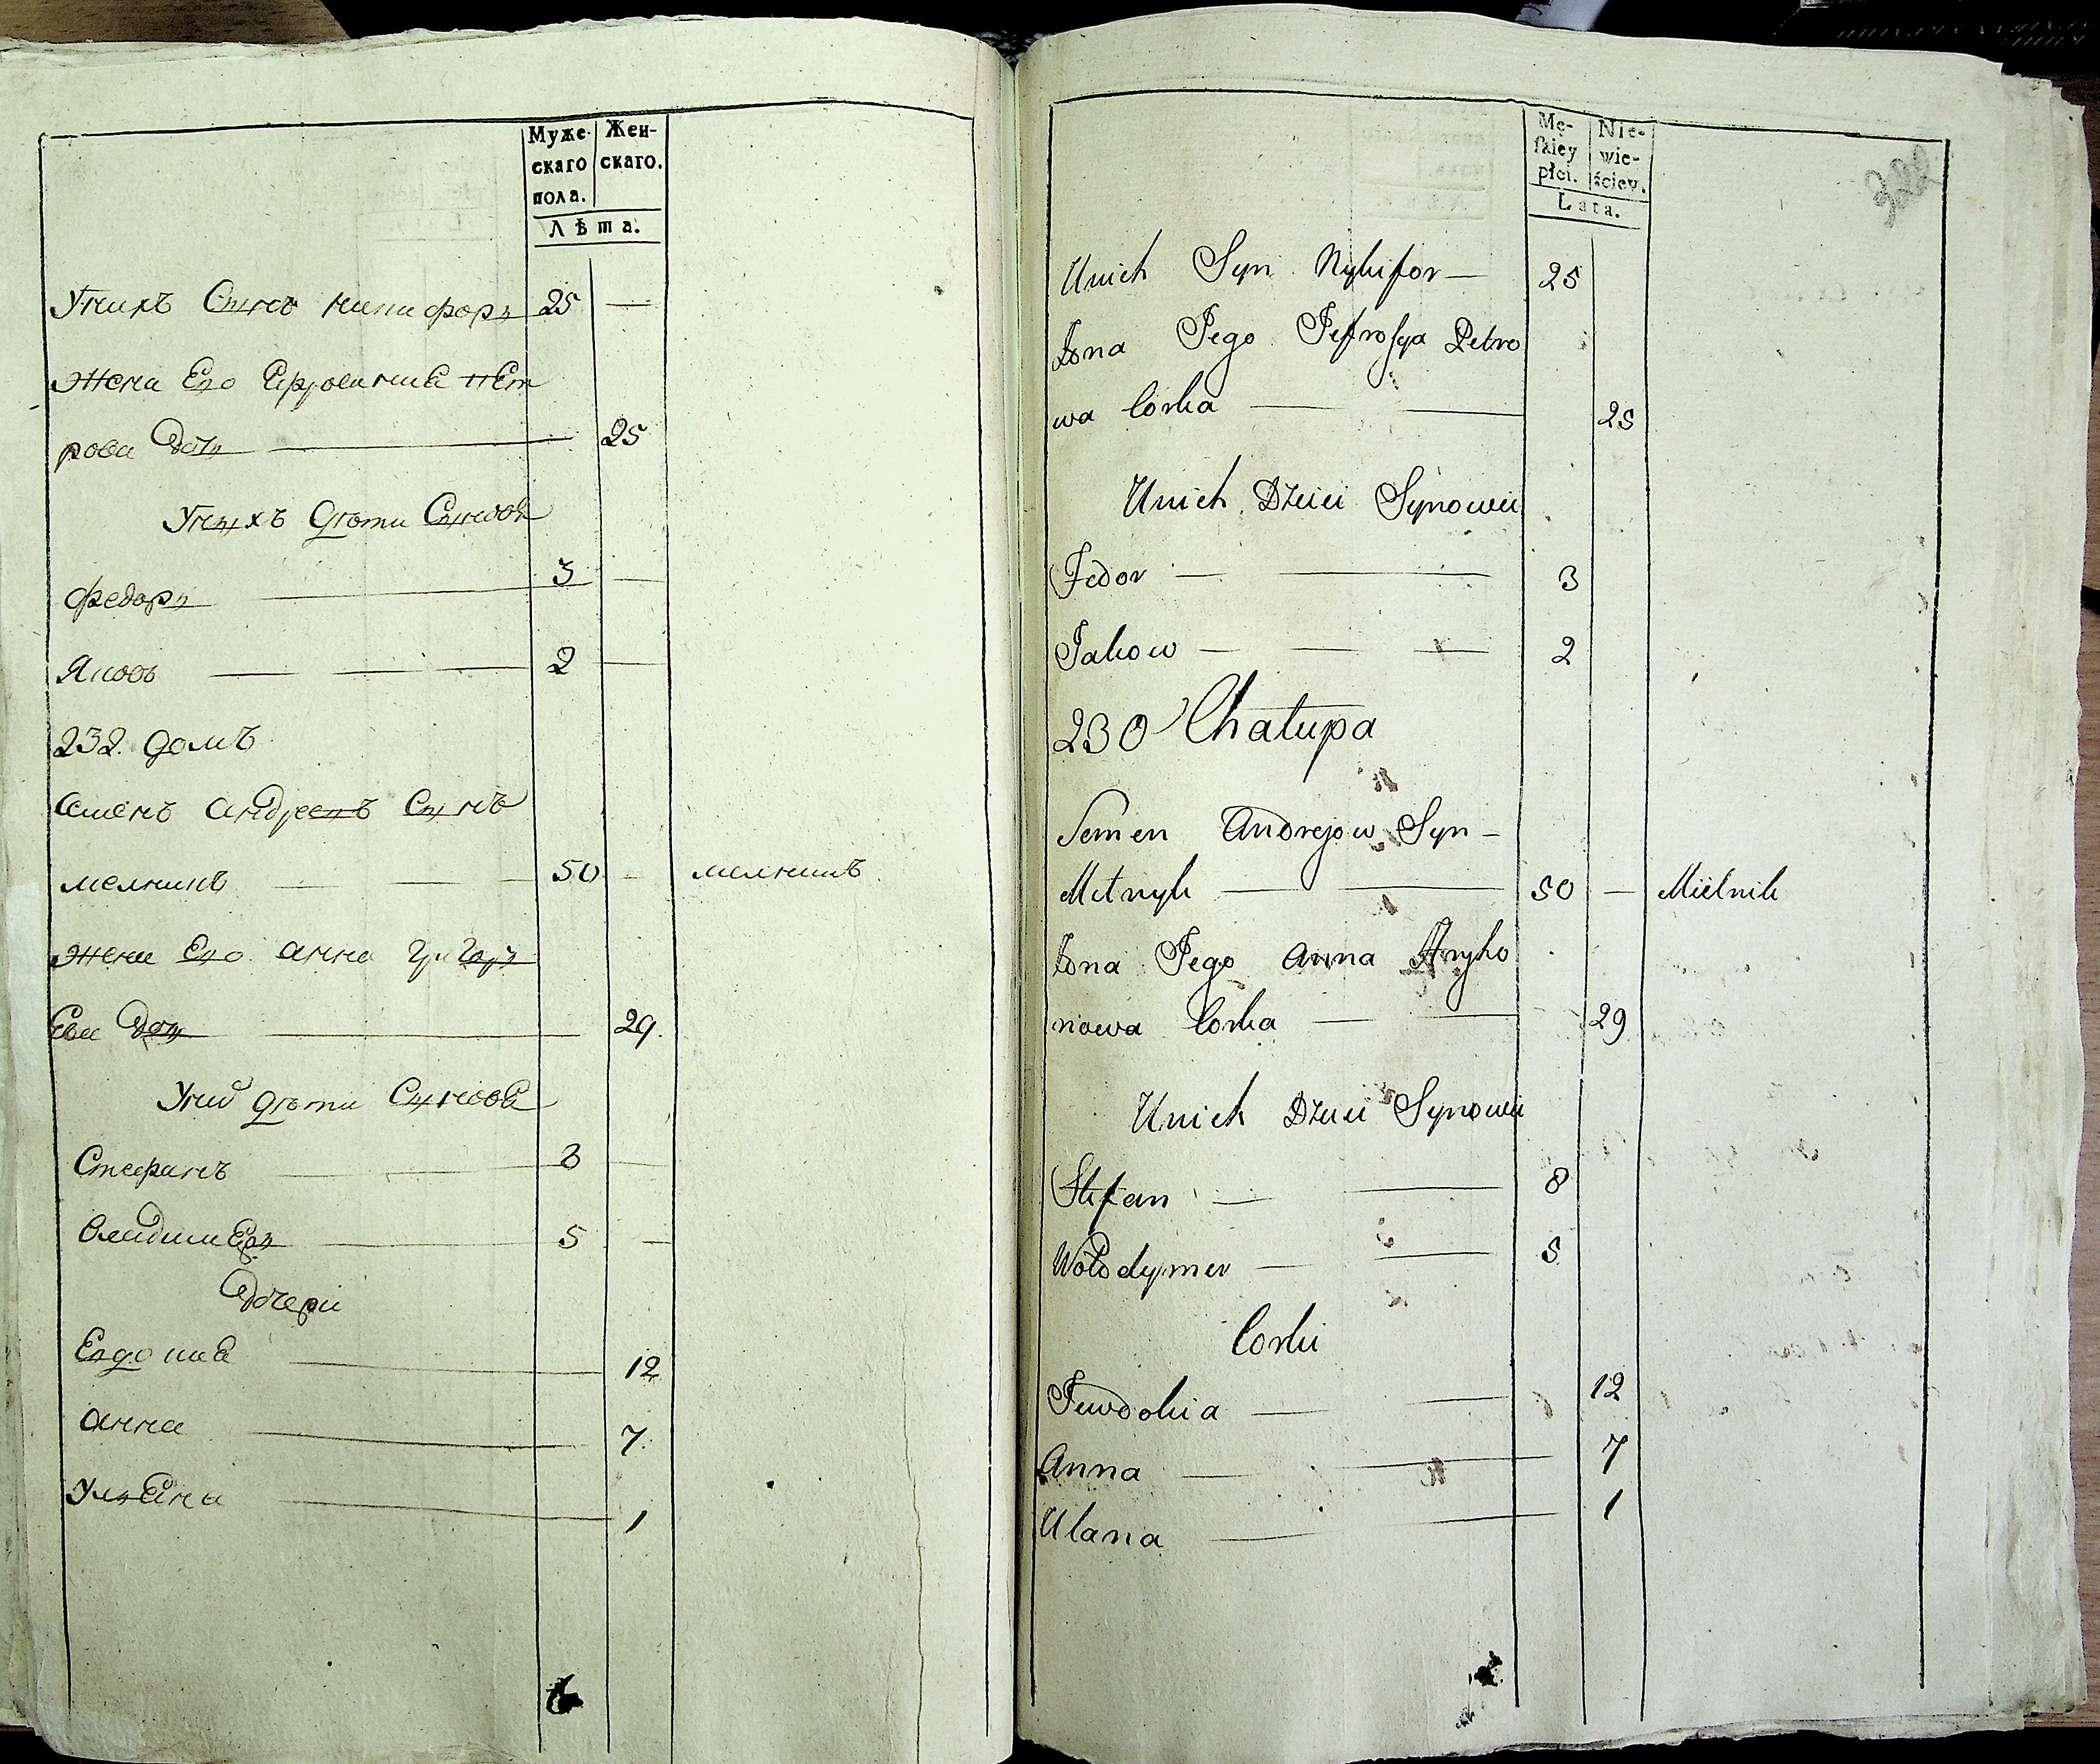 Муже-
скаго
пола.
Жен-
скаго.
Лѣта.
Унихъ Сынъ никифоръ 25
жена Его Ефросиния пет
рова Дочь 25
Унихъ дѣти Сынове
федоръ 3
Яковъ 2
232. домъ
Семенъ андреевъ Сынъ
мелникъ 50 мелникъ
жена Его анна григорь
Ева Дочь 29.
Унихъ дѣти Сынове
Стефанъ 8
владимеръ 5
Дочери
Евдокиа 12
анна 7.
Ульяна 1
Mę-
skiey
płci.
Nie-
wie-
ściey.
Lata.
322
Unich Syn Nykifor 25
Żona Jego Jefrosya Petro
wa Corka 25
Unich Dzieci Synowie
Fedor 3
Jakow 2
230 Chałupa
Semen Andrejow Syn
Melnyk 50 Mielnik
Żona Jego Anna Hryho
riowa Corka 29
Unich Dzieci Synowie
Stefan 8
Wołodymer 5
Corki
Jewdokia 12
Anna 7
Ulana 1